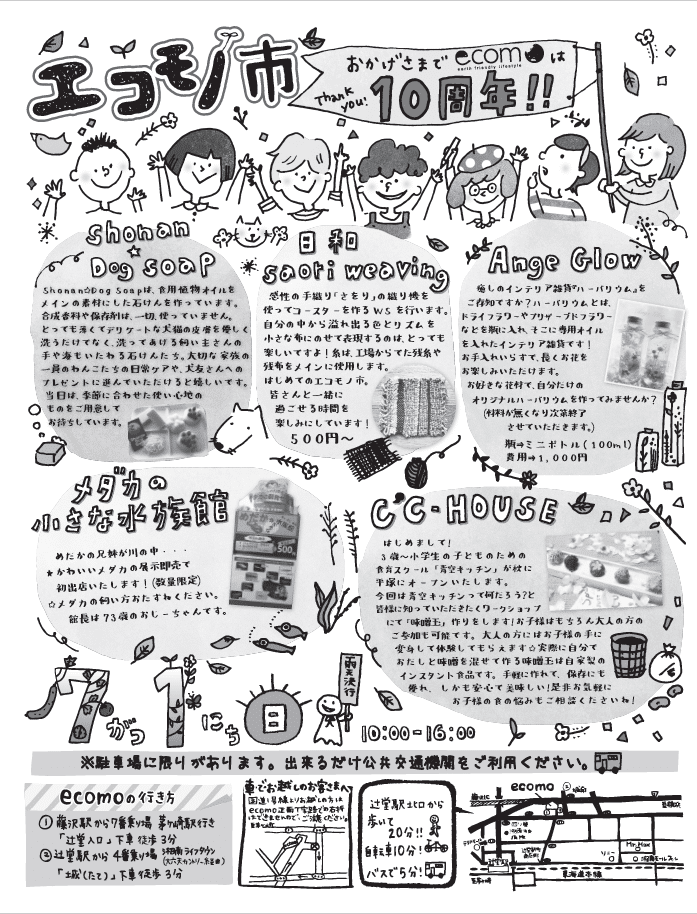 エコモノ市
おかげさまで ecomo は
earth friendly lifestyle
Thank you!
10周年!!
Shonan
☆
Dog soap
Shonan☆Dog Soapは、食用植物オイルを
メインの素材にした石けんを作っています。
合成香料や保存剤は、一切、使っていません。
とっても薄くてデリケートな犬猫の皮膚を優しく
洗うだけでなく、洗ってあげる飼い主さんの
手や海もいたわる石けんたち。大切な家族の
一員のわんこたちの日常ケアや、犬友さんへの
プレゼントに選んでいただけると嬉しいです。
当日は、季節に合わせた使い心地の
ものをご用意して
お待ちしています。
日和
saori weaving
感性の手織り「さをり」の織り機を
使ってコースターを作るWSを行います。
自分の中から溢れ出る色とリズムを
小さな布にのせて表現するのは、とっても
楽しいですよ!糸は、工場からでた残糸や
残布をメインに使用します。
はじめてのエコモノ市。
皆さんと一緒に
過ごせる時間を
楽しみにしています!
500円〜
Ange Glow
癒しのインテリア雑貨『ハーバリウム』を
ご存知ですか?ハーバリウムとは、
ドライフラワーやプリザーブドフラワー
などを瓶に入れ、そこに専用オイル
を入れたインテリア雑貨です!
お手入れいらずで、長くお花を
お楽しみいただけます。
お好きな花材で、自分だけの
オリジナルハーバリウムを作ってみませんか?
(材料が無くなり次第終了
させていただきます。)
瓶⇒ミニボトル(100ml)
費用⇒1,000円
メダカの
小さな水族館
めだかの兄妹が川の中・・・
★かわいいメダカの展示即売で
初出店いたします!(数量限定)
☆メダカの飼い方おたずねください。
館長は73歳のおじーちゃんです。
C'C-HOUSE
はじめまして!
3歳〜小学生の子どものための
食育スクール「青空キッチン」が秋に
平塚にオープンいたします。
今回は青空キッチンって何だろう?と
皆様に知っていただきたくワークショップ
にて「味噌玉」作りをします!お子様はもちろん大人の方の
ご参加も可能です。大人の方にはお子様の手に
変身して体験してもらえます☆実際に自分で
おだしと味噌を混ぜて作る味噌玉は自家製の
インスタント食品です。手軽に作れて、保存にも
優れ、しかも安心で美味しい!是非お気軽に
お子様の食の悩みもご相談くださいね!
7がつ1にち 日
雨天決行
10:00-16:00
※駐車場に限りがあります。出来るだけ公共交通機関をご利用ください。
ecomoの行き方
① 藤沢駅から7番乗り場 茅ヶ崎駅行き
「辻堂入口」下車 徒歩3分
② 辻堂駅から4番乗り場 湘南ライフタウン
「土城(たて)」下車 徒歩 3分
車でお越しのお客さまへ
辻堂駅北口から
歩いて
20分!!
自転車10分!
バスで5分!
ecomo
②
Mr.Max
東海道本線